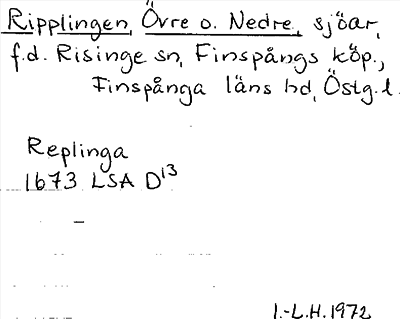 Ripplingen, Övre o. Nedre, sjöar,
f.d. Risinge sn, Finspångs köp.,
Finspånga läns hd, Östg.l.
Replinga
1673 LSA D13
I.-L.H. 1972